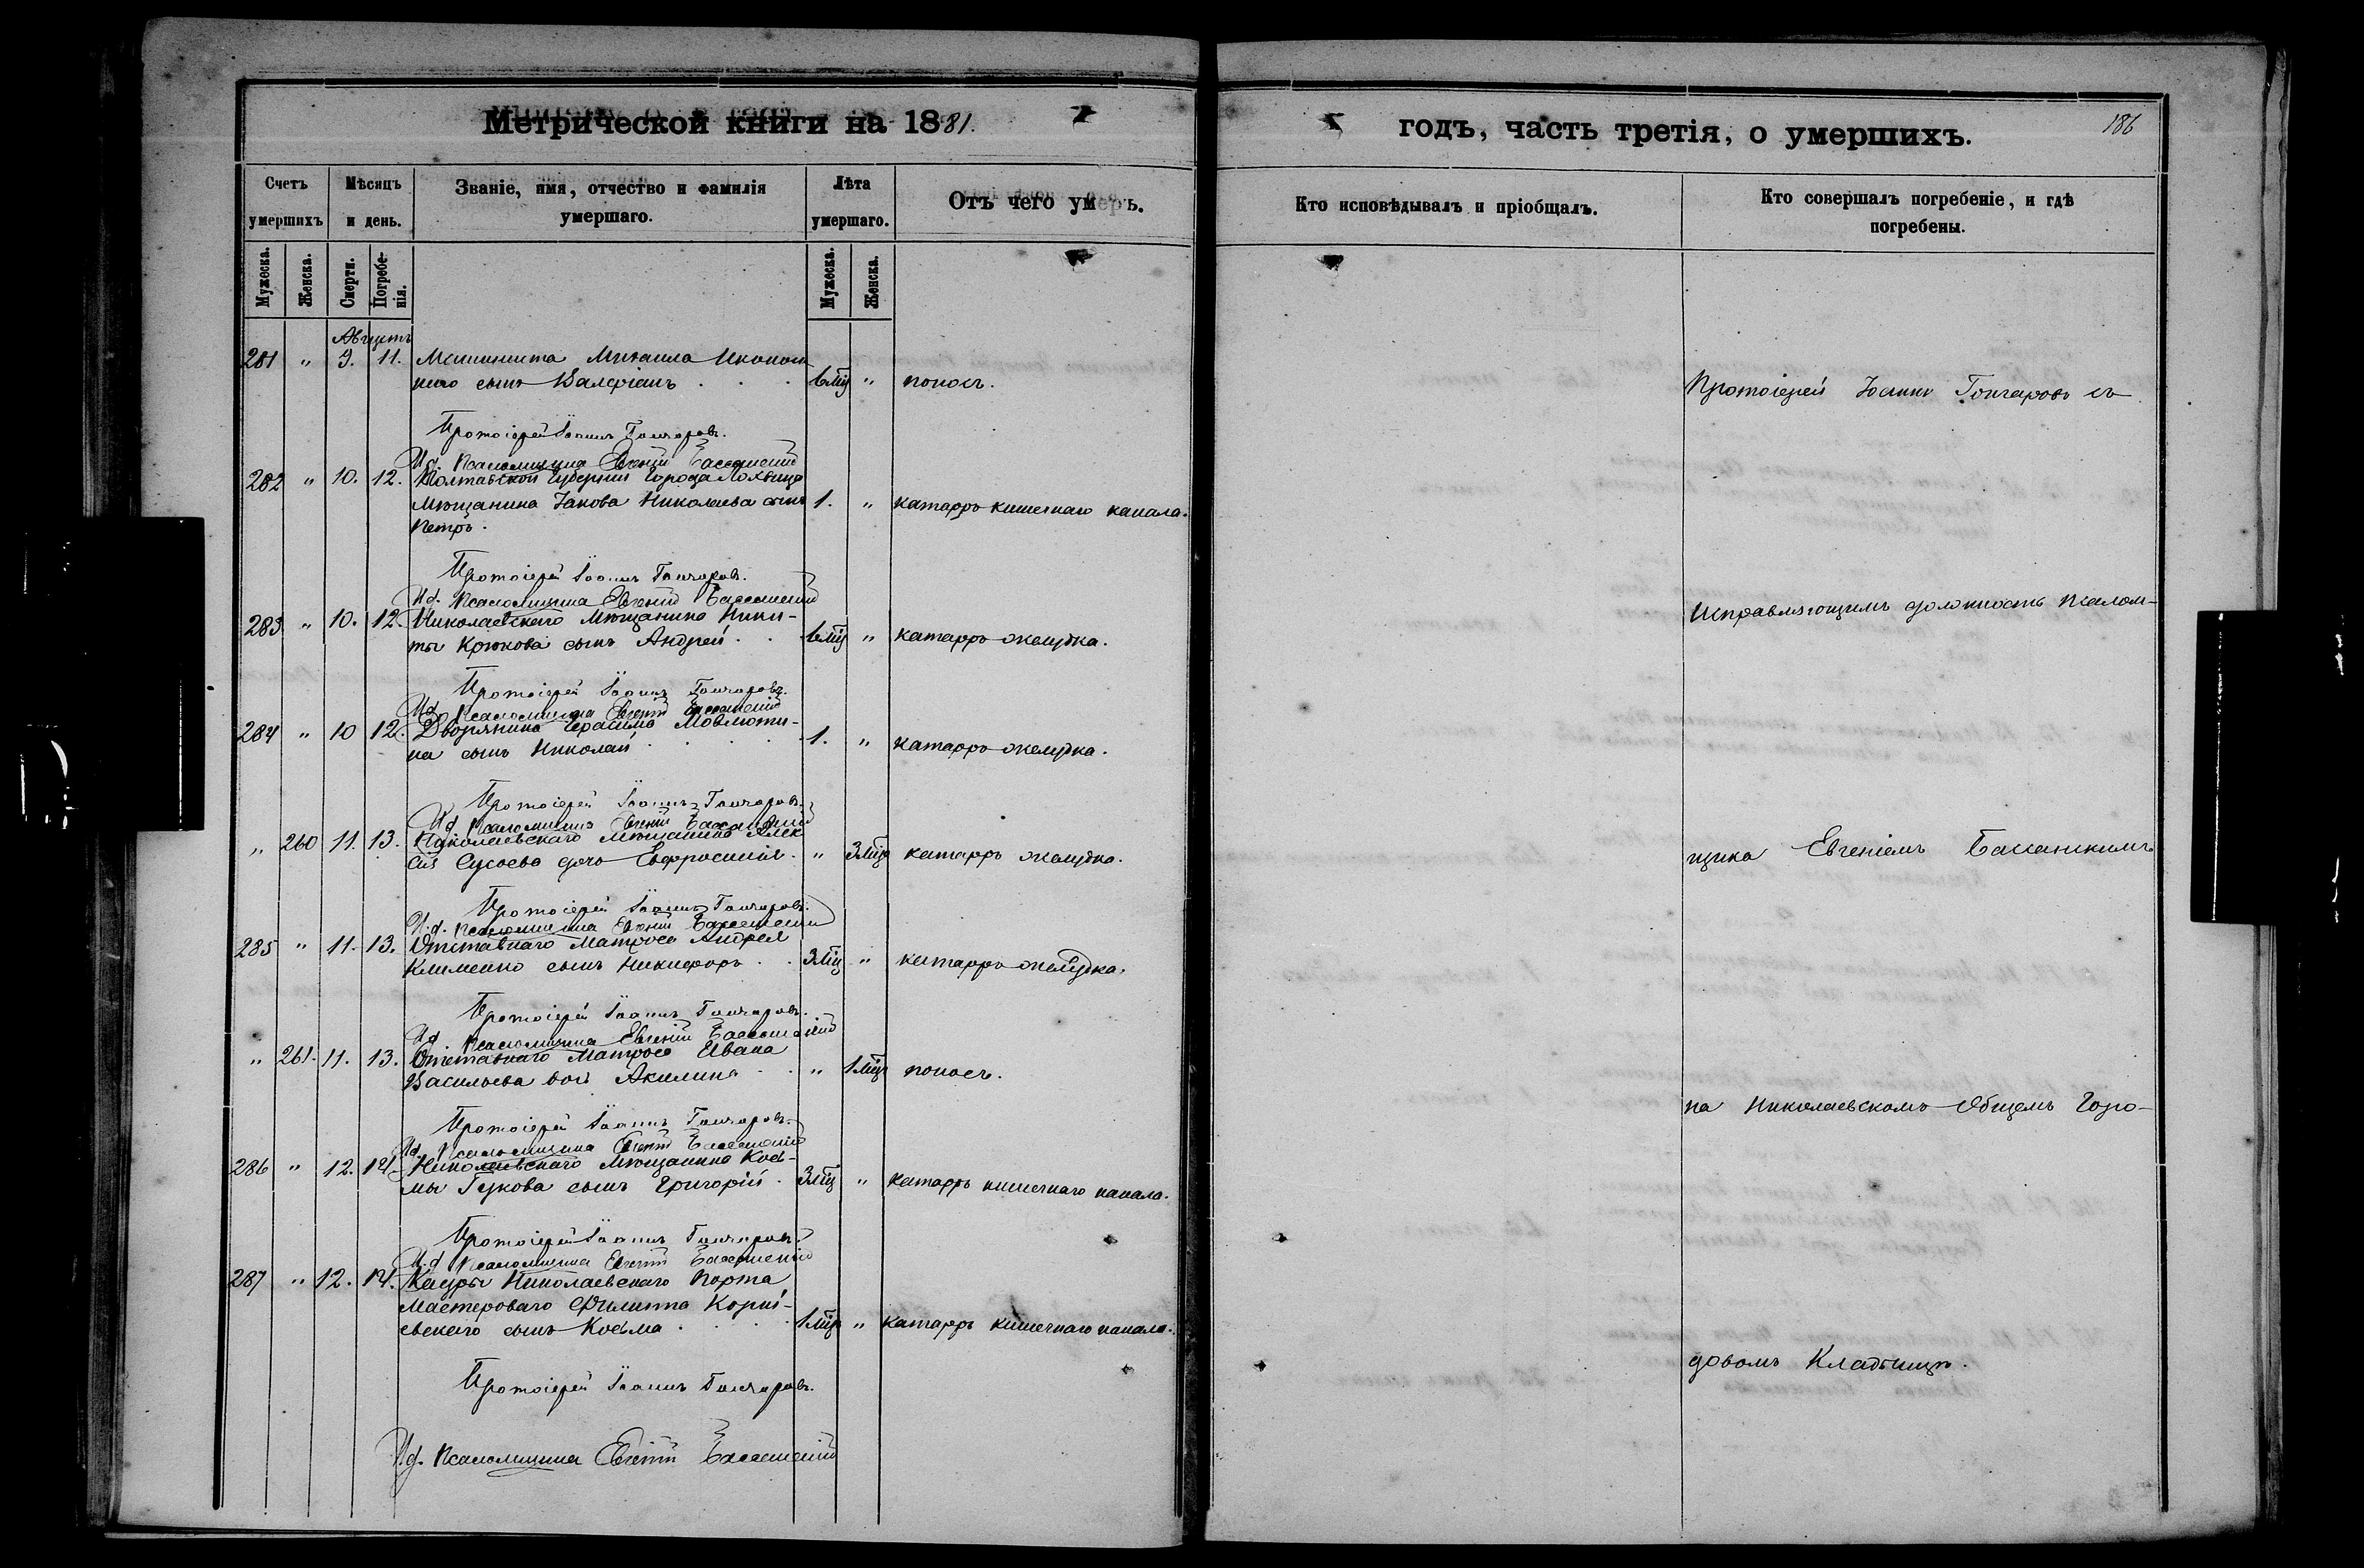 Метрической книги на 1881.
годъ, часть третія, о умершихъ.
186
Счетъ умершихъ
Мѣсяцъ и день.
Званіе, имя, отчество и фамилія умершаго.
Лѣта умершаго.
Отъ чего умеръ.
Кто исповѣдывалъ и пріобщалъ.
Кто совершалъ погребеніе, и гдѣ погребены.
Мужеска.
Женска.
Смерти.
Погребенія.
Мужеска.
Женска.
Августъ
281 " 9. 11. Машиниста Михаила
сынъ Валеріанъ . . . 6 мц " поносъ.
Протоіерей Іоаннъ Гончаровъ.
Ид. Псаломщика Евгеній Басанскій
282 " 10. 12. Полтавской Губерніи Города Лохвицы
Мѣщанина Іакова Николаева сынъ 1. " катарръ кишечнаго канала.
Петръ.
Протоіерей Іоаннъ Гончаровъ.
Ид. Псаломщика Евгеній Басанскій
283 " 10. 12. Николаевскаго Мѣщанина Ники-
ты Крюкова сынъ Андрей . . 6 мц " катарръ желудка.
Протоіерей Іоаннъ Гончаровъ.
Ид. Псаломщика Евгеній Басанскій
284 " 10 12. Дворянина Герасима
на сынъ Николай . . . . 1. " катарръ желудка.
Протоіерей Іоаннъ Гончаровъ.
Ид. Псаломщика Евгеній Басанскій
" 260 11. 13. Николаевскаго Мѣщанина Алек-
сія Сусоева дочь Евфросинія. " 3 мц катарръ желудка.
Протоіерей Іоаннъ Гончаровъ.
И.д. Псаломщика Евгеній Басанскій
285 " 11. 13. Отставнаго Матроса Андрея
Клименко сынъ Никифоръ . . 3 мц " катарръ желудка.
Протоіерей Іоаннъ Гончаровъ.
Ид. Псаломщика Евгеній Басанскій
" 261. 11. 13. Отставнаго Матроса Ивана
Васильева дочь Акилина . . " 1 мц поносъ.
Протоіерей Іоаннъ Гончаровъ.
Ид. Псаломщика Евгеній Басанскій
286 " 12. 14. Николаевскаго Мѣщанина Кось-
мы Гукова сынъ Григорій . 3 мц " катарръ кишечнаго канала.
Протоіерей Іоаннъ Гончаровъ.
И.д. Псаломщика Евгеній Басанскій
287 " 12. 14. Николаевскаго Порта
Мастероваго Филиппа Корні-
евскаго сынъ Косьма . . . . 1 мц " катарръ кишечнаго канала.
Протоіерей Іоаннъ Гончаровъ.
Ид. Псаломщика Евгеній Басанскій
Протоіерей Іоаннъ Гончаровъ съ
Исправляющимъ должность псалом-
щика Евгеніемъ Басанскимъ
на Николаевскомъ Общемъ Горо-
довомъ Кладбищѣ.